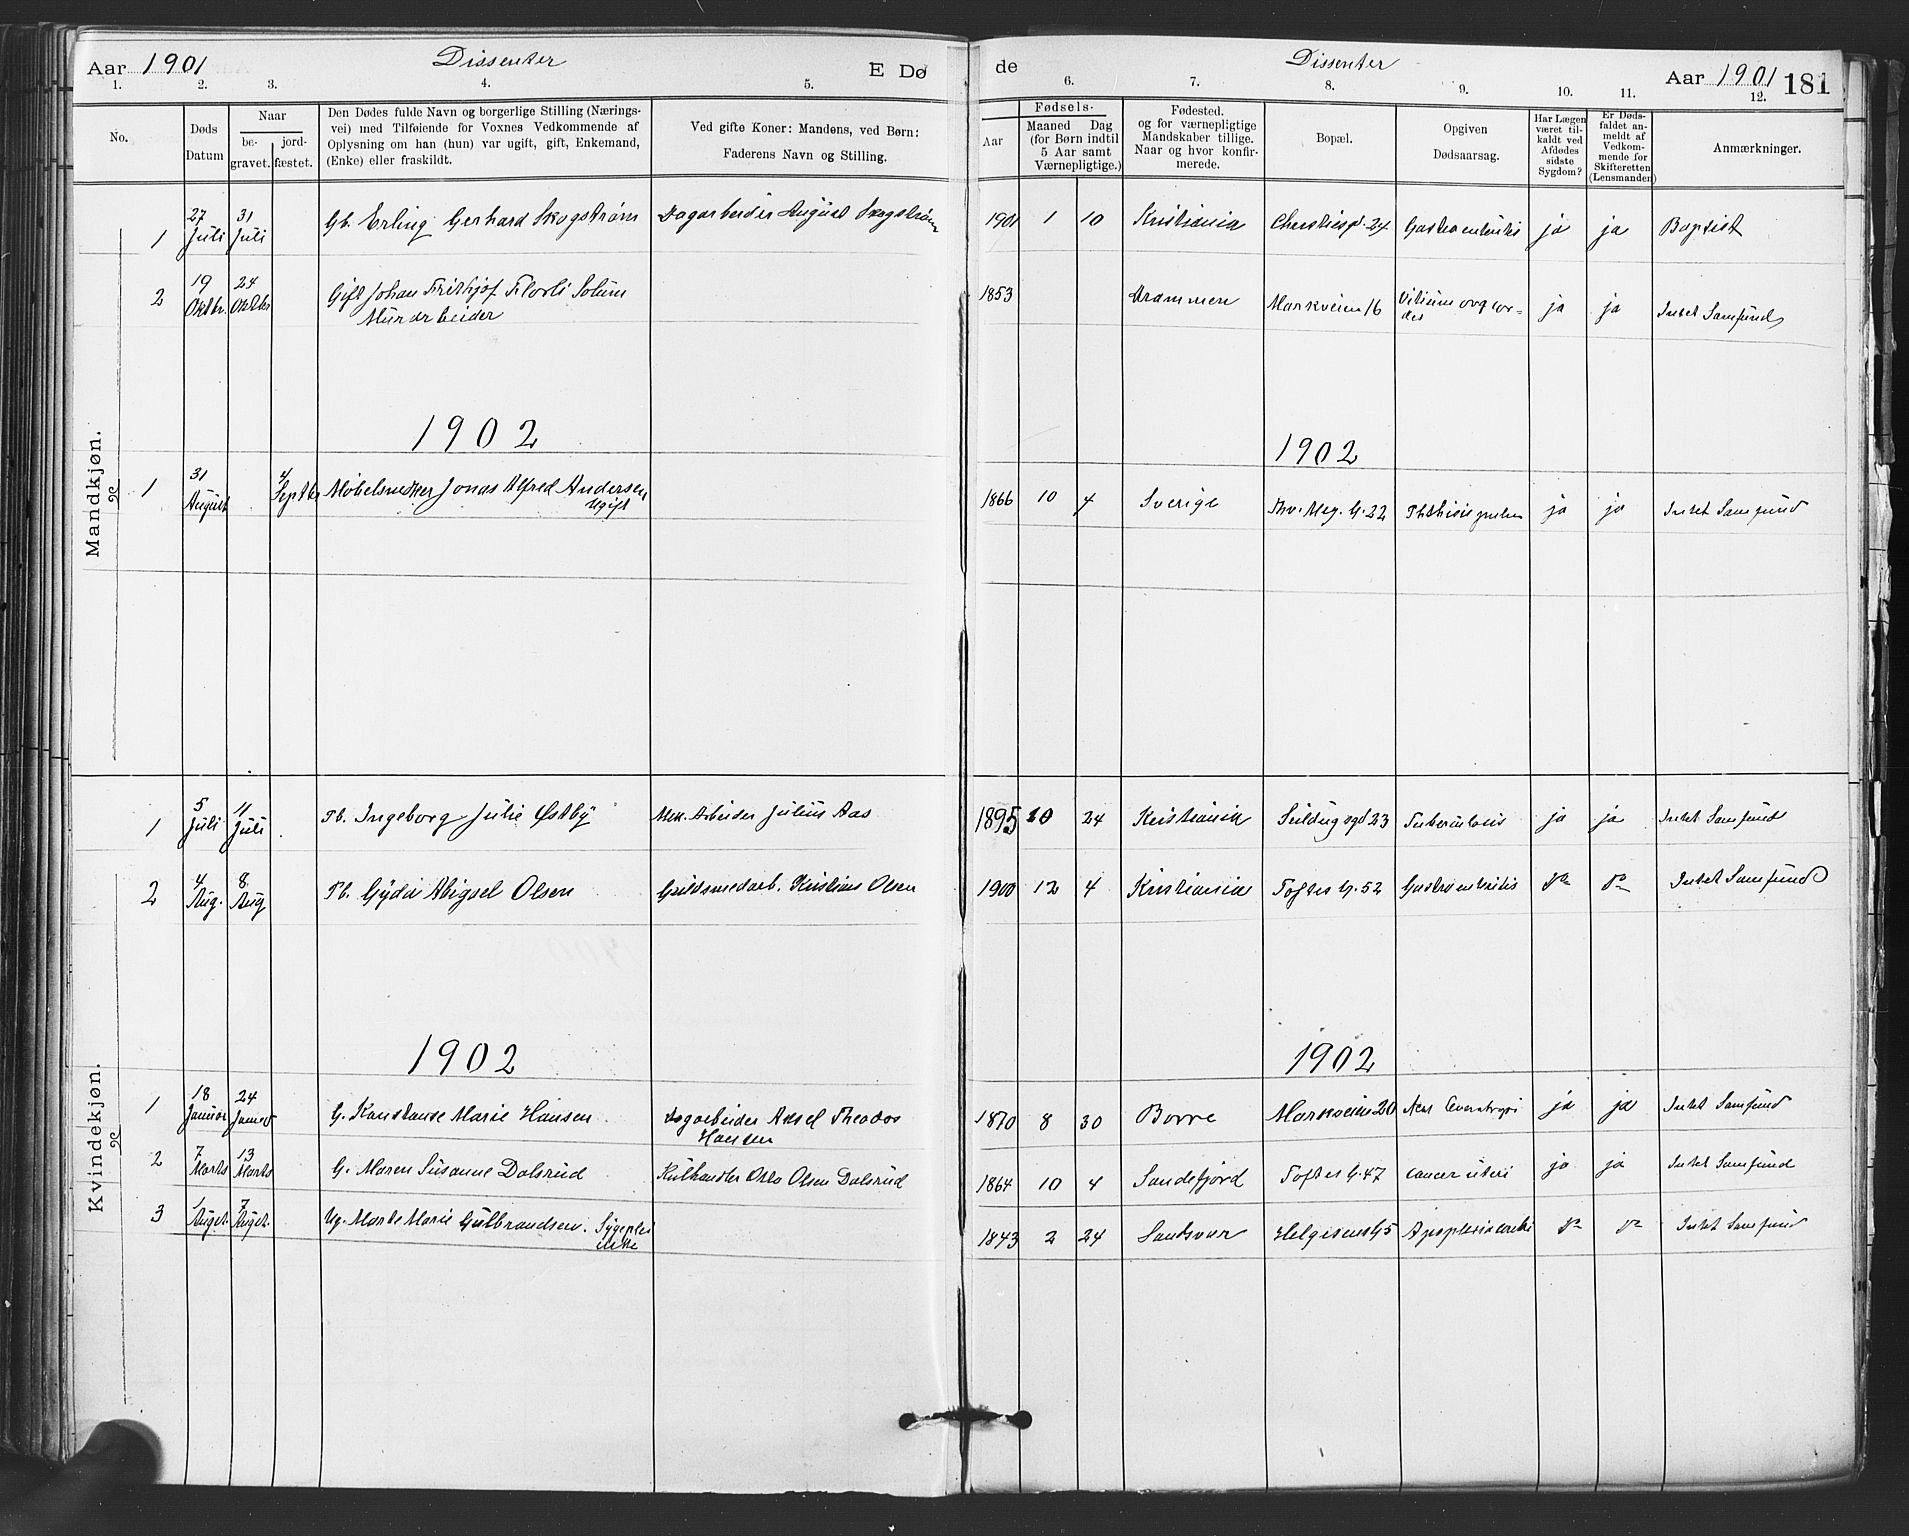 Aar 1901 Dissenter E Dø
de Dissenter Aar 1901 181
1. 2. 3. 4. 5.
6. 7. 8. 9. 10. 11. 12.
No.
Døds
Datum
Naar
be-
gravet.
jord-
fæstet.
Den Dødes fulde Navn og borgerlige Stilling (Nærings-
vei) med Tilføiende for Voxnes Vedkommende af
Oplysning om han (hun) var ugift, gift, Enkemand,
(Enke) eller fraskildt.
Ved gifte Koner: Mandens, ved Børn:
Faderens Navn og Stilling.
Fødsels-
Aar
Maaned Dag
(for Børn indtil
5 Aar samt
Værnepligtige.)
Fødested.
og for værnepligtige
Mandskaber tillige.
Naar og hvor konfir-
merede.
Bopæl.
Opgiven
Dødsaarsag.
Har Lægen
været til-
kaldt ved
Afdødes
sidste
Sygdom?
Er Døds-
faldet an-
meldt af
Vedkom-
mende for
Skifteretten
(Lensmanden)
Anmærkninger.
Mandkjøn.
1 27 Juli 31 Juli Gb. Erling Gerhard Skogstrøm Dagarbeider August Skogstrøm 1901 1 10 Kristiania Christiesgd. 24 Gastroenteritis ja ja Baptist
2 19 Oktbr. 24 Oktbr Gift Johan Frithjof Florli Solum
Murarbeider 1853 Drammen Markveien 16 Vitium org cor-
dis ja ja Intet Samfund
1902 1902
1 31 August 4 Septbr Møbelsnedker Jonas Alfred Andersen
Ugift 1866 10 4 Sverige Thv. Mey. G. 22 Phthisis pulm ja ja Intet Samfund
Kvindekjøn.
1 5 Juli 11 Juli Pb. Ingeborg Julie Østby Mek. Arbeider Julius Aas 1895 10 24 Kristiania Seildugsgd 23 Tuberculosis ja ja Intet Samfund
2 4 Aug. 8 Aug Pb. Gyda Abigael Olsen Guldsmedarb. Kristian Olsen 1900 12 4 Kristiania Toftes G. 52 Gastroenteritis do do Intet Samfund
1902 1902
1 18 Januar 24 Januar G. Konstanse Marie Hansen Dagarbeider Aksel Theodor
Hansen 1870 8 30 Borre Markveien 20 ja ja Intet Samfund
2 7 Marts 13 Marts G. Maren Susanne Dalsrud Kulhandler Otto Olsen Dalsrud 1864 10 4 Sandefjord Toftes G. 47 Cancer uteri ja ja Intet Samfund
3 1 Augst. 7 Augst. Ug. Marte Marie Gulbrandsen. Sygeplei
erske 1843 2 24 Sandsvær Helgesens G 5 Apoplexia cerebri do do Intet Samfund